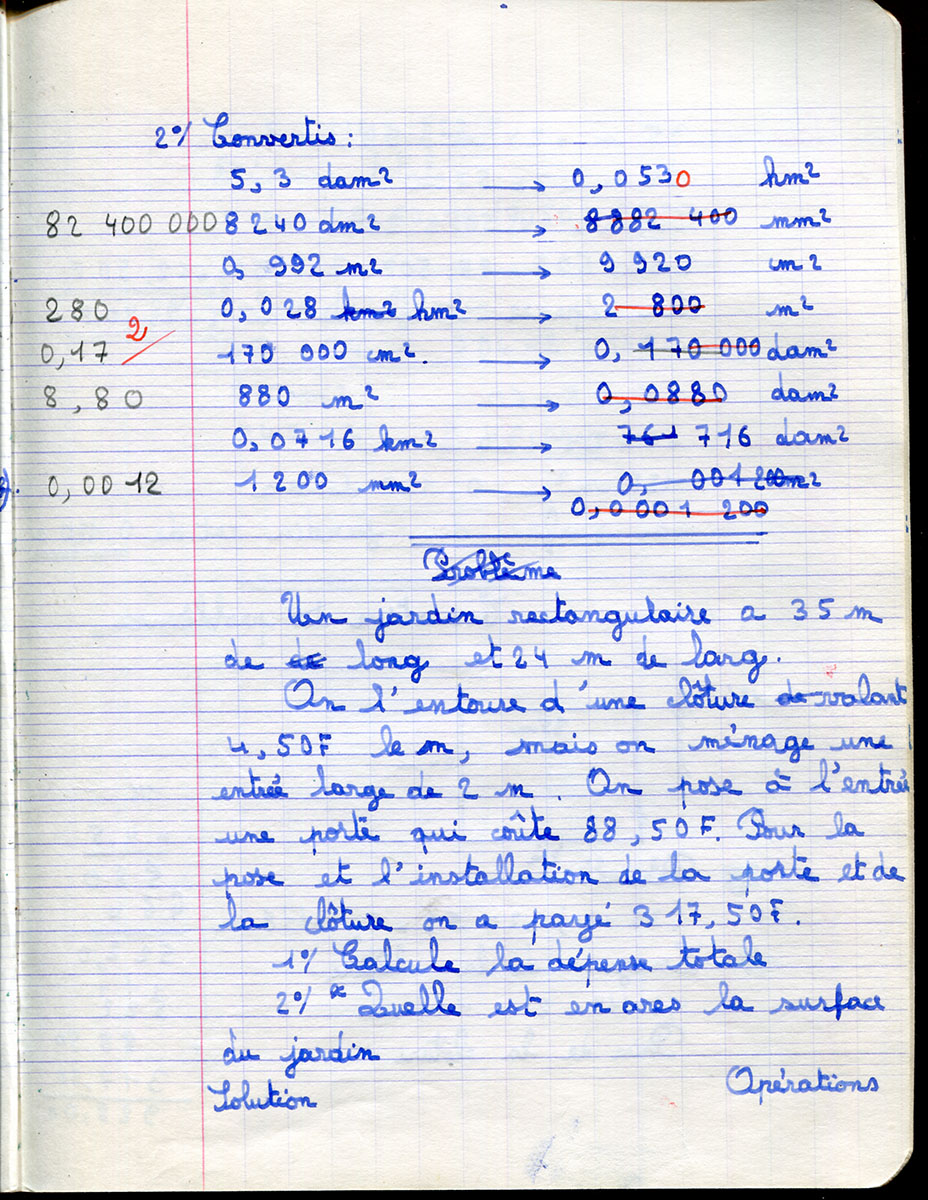 2°/ Convertis :
5,3 dam² → 0,0530 hm²
82 400 000 8240 dm² → 8882 400 mm²
0, 992 m² → 9 920 cm²
280 0,028 km² hm² → 2 800 m²
2
0,17 170 000 cm². → 0, 170 000 dam²
8,80 880 m² → 0,0880 dam²
0,0716 km² → 761 716 dam²
0,0012 1200 mm² → 0, 001200m²
0,0001 200
Problème
Un jardin rectangulaire a 35 m
de de long et 24 m de larg.
On l'entoure d'une clôture de valant
4,50F le m, mais on ménage une
entrée large de 2 m. On pose à l'entrée
une porte qui coûte 88,50F. Pour la
pose et l'installation de la porte et de
la clôture on a payé 317,50F.
1°/ Calcule la dépense totale
2°/ Quelle est en ares la surface
du jardin
Solution Opérations